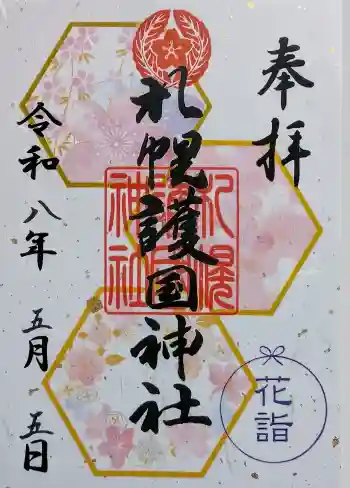 奉拝
札幌護国神社
令和八年 五月 五日
花詣
札幌
護国
神社